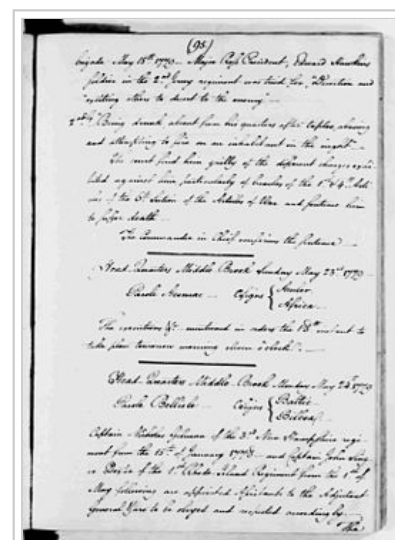 (95)
brigade May 18th 1779 Major Ross President, Edward Hawkins
soldier in the 2nd Jersey regiment was tried for, "Desertion and
exciting others to desert to the enemy"
2ndly "Being drunk, absent from his quarters after taptoo, abusing
and attempting to fire on an inhabitant in the night"
The court find him guilty of the different charges exhi-
bited against him particularly of breaches of the 1st & 4th Arti-
cles of the 6th Section of the Articles of War and sentence him
to suffer death
The Commander in Chief confirms the sentence
Head-Quarters Middle Brook Sunday May 23rd 1779
Parole C. Signs
Africa
The executions &c. mentioned in orders the 18th instant to
take place tomorrow morning eleven o'clock.
Head-Quarters Middle-Brook Monday May 24th 1779
Parole Bellisle C. Signs Baltic
Bilboa
Captain Nicholas Gilman of the 3rd New Hampshire regi-
ment from the 15th of January 1778 and Captain John Sing-
er Dexter of the 1st Rhode Island Regiment from the 1st of
May following are appointed Assistants to the Adjutant
General & are to be obeyed and respected accordingly.
The